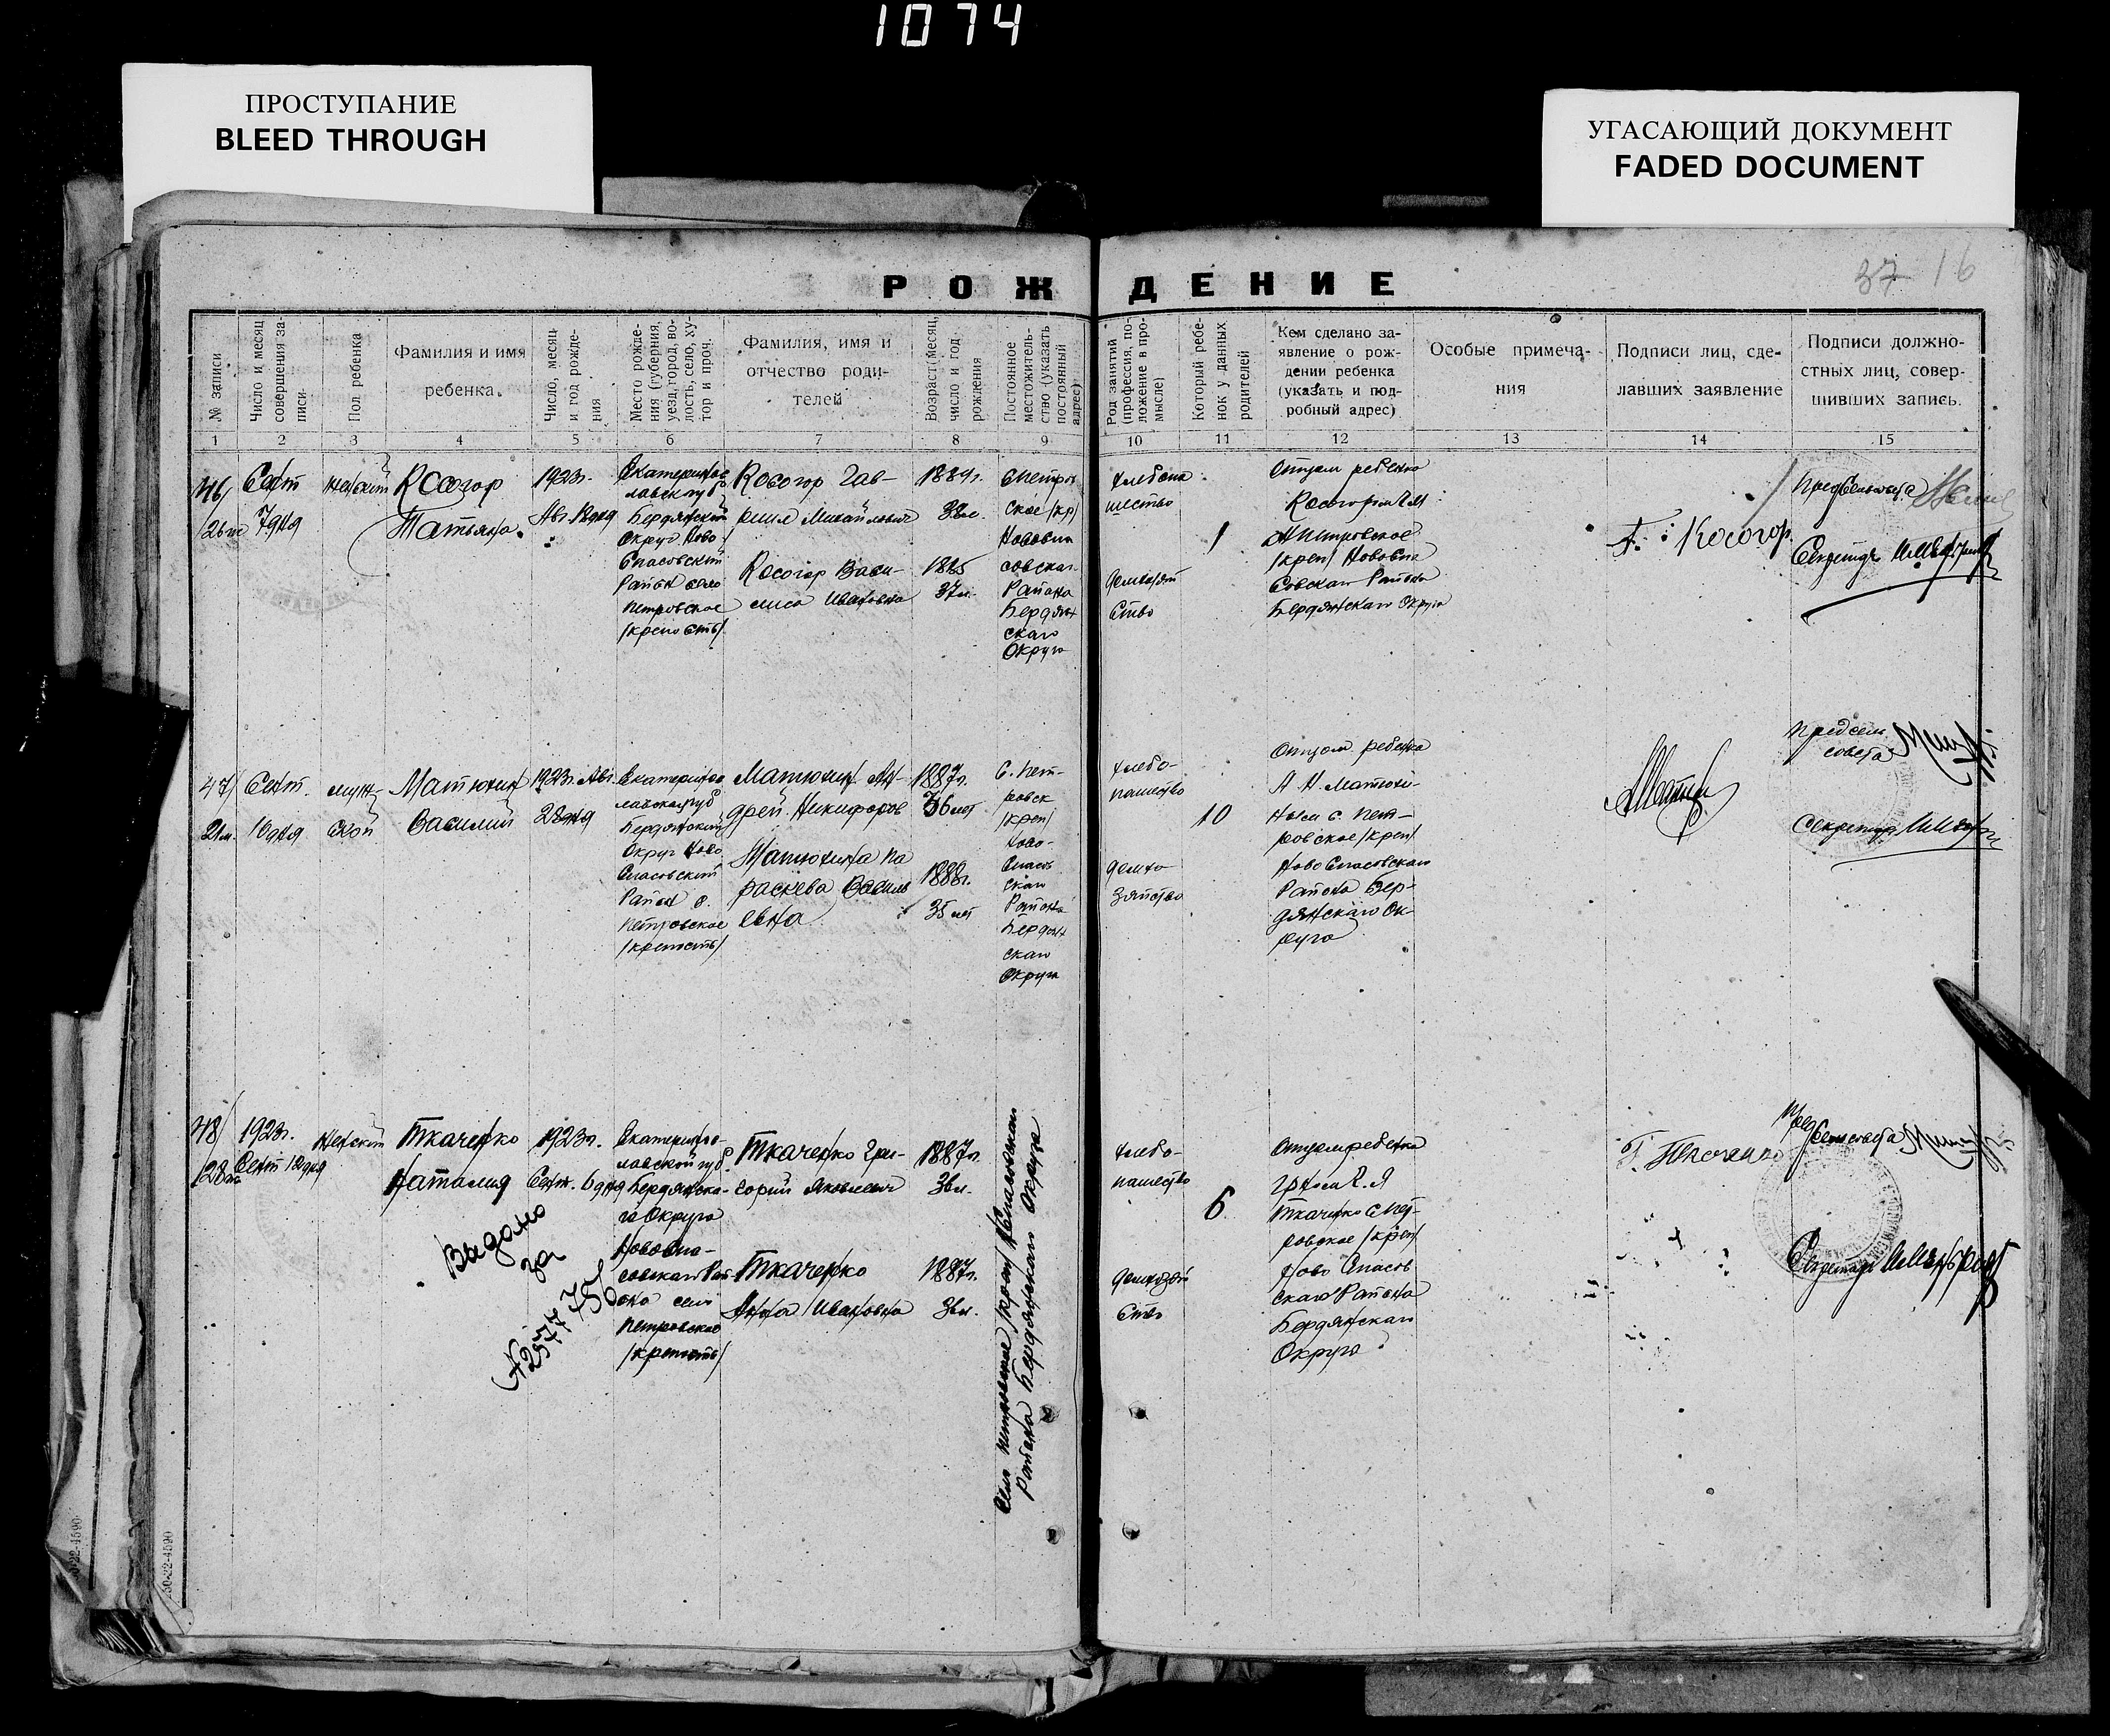 1074
ПРОСТУПАНИЕ
BLEED THROUGH
УГАСАЮЩИЙ ДОКУМЕНТ
FADED DOCUMENT
37 16
РОЖДЕНИЕ
№ записи
Число и месяц совершения за-
писи
Пол ребенка
Фамилия и имя
ребенка.
Число, месяц
и год рожде-
ния
Место рожде-
ния (губерния,
уезд, город, во-
лость, село, ху-
тор и проч.
Фамилия, имя и
отчество роди-
телей
Возраст, месяц,
число и год
рождения
Постоянное
местожитель-
ство (указать
постоянный
адрес)
Род занятий
(профессия, по-
ложение в про-
мысле)
Который ребе-
нок у данных
родителей
Кем сделано за-
явление о рож-
дении ребенка
(указать и под-
робный адрес)
Особые примеча-
ния
Подписи лиц, сде-
лавших заявление
Подписи должно-
стных лиц, совер-
шивших запись.
1 2 3 4 5 6 7 8 9 10 11 12 13 14 15
46/
Сент
7 дня
женский
Косогор
Татьяна
1923г.
Авг.
Екатеринос
лавск губ
Бердянский
Округ Ново
Спасовский
Район село
Петровское
/крепость/
Косогор Гав-
риил Михайлович
Косогор Васи-
лиса Ивановна
32л.
1885
37л.
с Петров
ское /кр/
Новоспа
совскаго
Района
Бердян
скаго
Округа
хлебопа
шество
домохозяй
ство
1
Отцом ребенка
Косогор Г М
Петровское
/креп/ Новоспа
совскаго Района
Бердянскаго Округа
Г. Косогор
Пред Сельсовета
Секретарь
47/
Сент.
16 дня
муж-
ской
Матюхин
Василий
1923г. Авг.
28 дня
Екатеринос
лавская губ
Бердянский
Округ Ново
Спасовский
Район с.
Петровское
/крепость/
Матюхин Ан-
дрей Никифоров
Матюхина Па
раскева Василь
евна
1887г.
36 лет
1888г.
35 лет
с. Пет-
ровск
/креп/
Ново-
Спасов
скаго
Района
Бердян
скаго
Округа
хлебо-
пашество
домхо
зяйство
10
Отцом ребенка
А Н. Матюхи-
ным с. Пет-
ровское /креп/
Ново Спасовскаго
Района Бер-
дянскаго Ок-
руга
Предсель
совета
Секретарь
48/
1923г.
Сент 12 дня
Женский
Ткаченко
Наталия
1923г.
Сент. 6 дня
Екатеринос-
лавской губ.
Бердянска-
го Округа
Новоспа-
совскаго Рай
она село
Петровское
/крепость/
Ткаченко Гри-
горий Яковлевич
Ткаченко
Анна Ивановна
1887г.
36л.
1887г.
36л.
Село Петровское /креп/ Н Спасовскаго
Района Бердянскаго Округа
хлебо-
пашество
домхозяй
ство
6
Отцом ребенка
Гр-ном Г. Я
Ткаченко с Пет-
ровское /креп/
Ново Спасов
скаго Района
Бердянскаго
Округа
Г. Ткаченко
Пред
Сельсовета
Секретарь
Выдано
за
50-22-4590